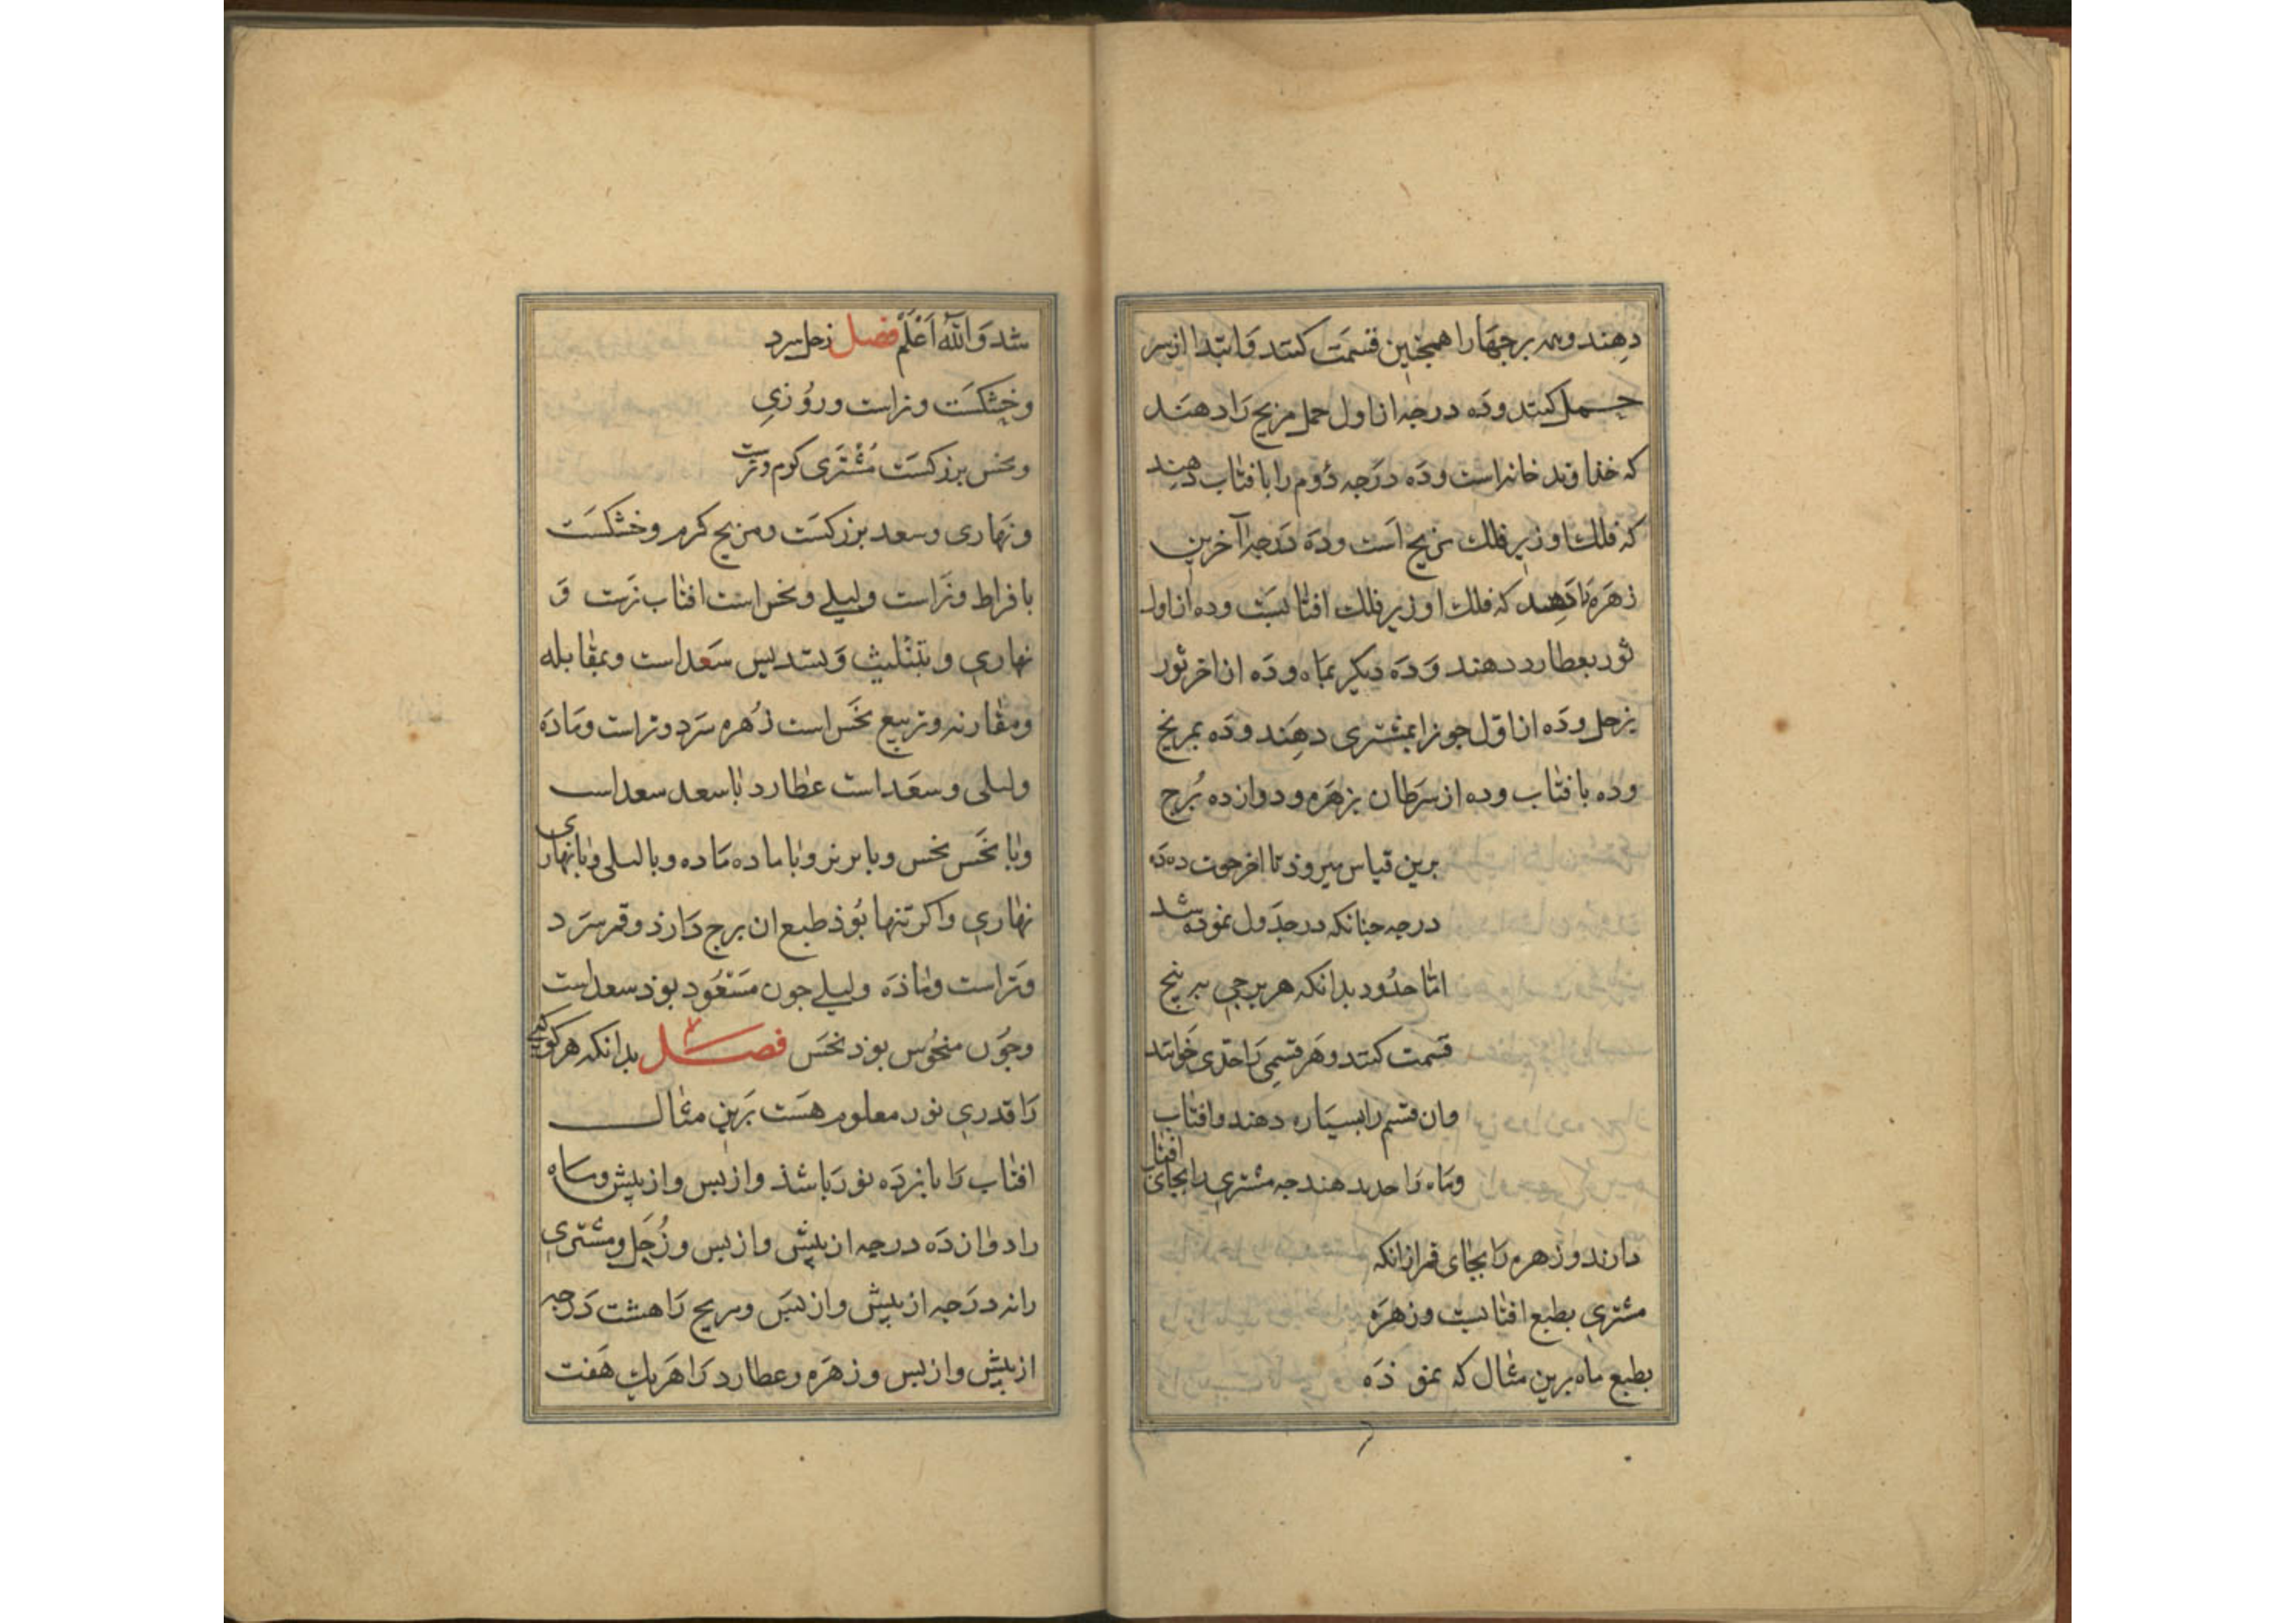 دهند و همه برجها را همچنین قسمت کنند و ابتدا از سر
حمل کنند و ده درجه از اول حمل مریخ را دهند
که خذاوند خانه است و ده درجه دوم را بافتاب دهند
که فلک او زیر فلک مریخ است و ده درجه آخرین
زهره را دهند که فلک او زیر فلک افتابست و ده از اول
ثور بعطارد دهند و ده دیکر بماه و ده از اخر ثور
بزحل و ده از اول جوزا بمشتری دهند و ده بمریخ
و ده بافتاب و ده از سرطان بزهره و دوازده برج
برین قیاس میروذ تا اخر حوت ده ده
درجه جنانکه در جدول نموده شد
امّا حدود بدانکه هر برجی به پنج
قسمت کنند و هر قسمی را حدّی خوانند
وان قسم را بسیاره دهند وافتاب
وماه را حد ندهند جه مشتری را بجای افتاب
دارند و زهره را بجای قمر ازانکه
مشتری بطبع افتابست و زهره
بطبع ماه برین مثال که نموذه
شد وَاللّٰه اَعْلَم فصل زحل سرد
و خشکست و نر است و روزی
و نحس بزرکست مشتری کرم و ترست
و نهاری و سعد بزرکست و مریخ کرم و خشکست
بافراط و نر است و لیلی و نحس است افتاب نرت و
نهاری و بتثلیث و بتسدیس سعد است و بمقابله
و مقارنه و تربیع نحس است زهره سرد و تر است و ماده
و لیلی و سعد است عطارد با سعد سعد است
و با نحس نحس و با نر نر و با ماده ماده و با لیلی و با نهاری
نهاری و اکر تنها بوذ طبع ان برج دارذ و قمر سرد
و تر است و ماذه و لیلی جون مسعود بوذ سعد است
و جون منحوس بوذ نحس فصل بدانکه هر کوکبی
را قدری نور معلوم هست برین مثال
افتاب را بانزده نور باشذ و از بس و از پیش و ماه
را دوازده درجه از پیش و از بس و زحل و مشتری
را نه درجه از پیش و از بس و مریخ را هشت درجه
از پیش و از بس و زهره و عطارد را هر یک هفت